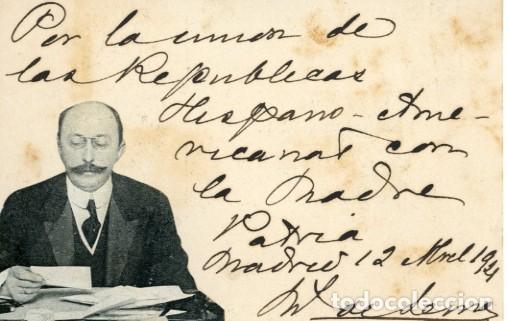 Por la union de
las Republicas
Hispano-Ame-
ricanas con
la Madre
Patria
Madrid 12 Abril 19
de
todocoleccion